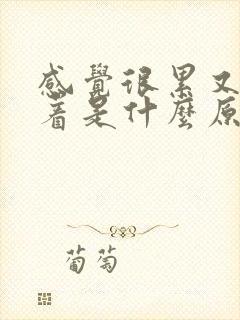 感覺很累又
着是什麼原
葡萄